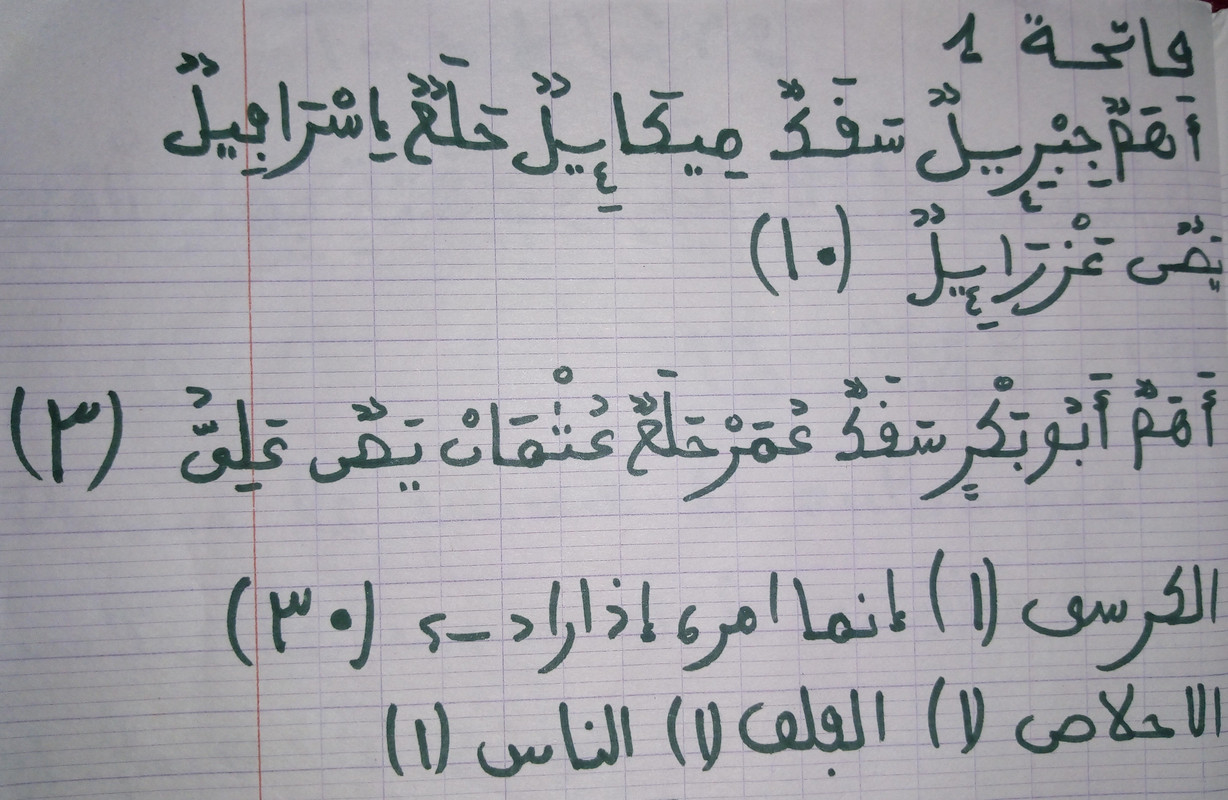 فاتحة 1
أَهَمٌّ جِبْرِيلٌ سَقَكٌ مِيكَايِيلٌ حَلَعٌ إِسْرَافِيلٌ
يَصٌ عَزْرَايِيلٌ (١٠)
أَهَمٌّ أَبُو بَكْرٍ سَقَكٌ عُمَرْ حَلَعٌ عُثْمَانْ يَصٌ عَلِيُّ (٣)
الكرسى (١) إنما امره إذا اراد ــ (٣٠)
الاخلاص (١) الفلق (١) الناس (١)